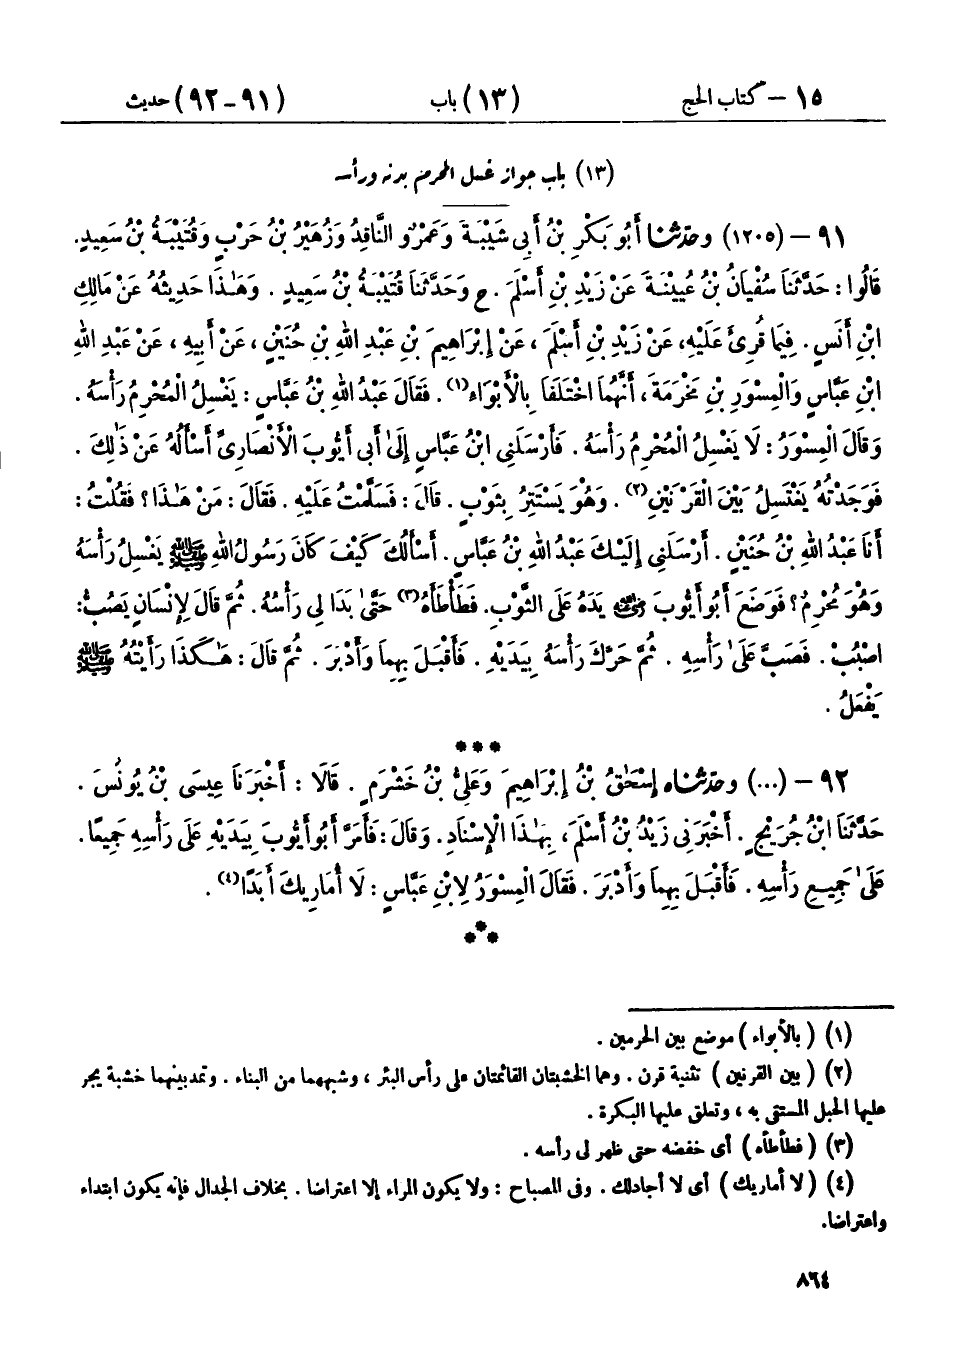 ١٥ – كتاب الحج (١٣) باب (٩١ - ٩٢) حديث
(١٣) باب جواز غسل المحرم بدنه ورأسه
٩١ – (١٢٠٥) وحدّثنا أَبُو بَكْرِ بْنُ أَبِي شَيْبَةَ وَعَمْرٌو النَّاقِدُ وَزُهَيْرُ بْنُ حَرْبٍ وَقُتَيْبَةُ بْنُ سَعِيدٍ.
قَالُوا : حَدَّثَنَا سُفْيَانُ بْنُ عُيَيْنَةَ عَنْ زَيْدِ بْنِ أَسْلَمَ . ح وَحَدَّثَنَا قُتَيْبَةُ بْنُ سَعِيدٍ . وَهَـٰذَا حَدِيثُهُ عَنْ مَالِكِ
ابْنِ أَنَسٍ . فِيمَا قُرِئَ عَلَيْهِ، عَنْ زَيْدِ بْنِ أَسْلَمَ ، عَنْ إِبْرَاهِيمَ بْنِ عَبْدِ اللهِ بْنِ حُنَيْنٍ ، عَنْ أَبِيهِ ، عَنْ عَبْدِ اللهِ
ابْنِ عَبَّاسٍ وَالْمِسْوَرِ بْنِ مَخْرَمَةَ ، أَنَّهُمَا اخْتَلَفَا بِالْأَبْوَاء(١) . فَقَالَ عَبْدُ اللهِ بْنُ عَبَّاسٍ : يَغْسِلُ الْمُحْرِمُ رَأْسَهُ .
وَقَالَ الْمِسْوَرُ : لَا يَغْسِلُ الْمُحْرِمُ رَأْسَهُ . فَأَرْسَلَنِي ابْنُ عَبَّاسٍ إِلَىٰ أَبِي أَيُّوبَ الْأَنْصَارِىِّ أَسْأَلُهُ عَنْ ذَٰلِكَ .
فَوَجَدْتُهُ يَغْتَسِلُ بَيْنَ الْقَرْنَيْنِ(٢) . وَهُوَ يَسْتَتِرُ بِثَوْبٍ . قَالَ : فَسَلَّمْتُ عَلَيْهِ . فَقَالَ : مَنْ هَـٰذَا ؟ فَقُلْتُ :
أَنَا عَبْدُ اللهِ بْنُ حُنَيْنٍ . أَرْسَلَنِي إِلَيْكَ عَبْدُ اللهِ بْنُ عَبَّاسٍ . أَسْأَلُكَ كَيْفَ كَانَ رَسُولُ اللهِ ﷺ يَغْسِلُ رَأْسَهُ
وَهُوَ مُحْرِمٌ ؟ فَوَضَعَ أَبُو أَيُّوبَ رضي الله عنه يَدَهُ عَلَى الثَّوْبِ. فَطَأْطَأَهُ(٣) حَتَّىٰ بَدَا لِي رَأْسُهُ . ثُمَّ قَالَ لِإِنْسَانٍ يَصُبُّ :
اصْبُبْ . فَصَبَّ عَلَىٰ رَأْسِهِ . ثُمَّ حَرَّكَ رَأْسَهُ بِيَدَيْهِ . فَأَقْبَلَ بِهِمَا وَأَدْبَرَ . ثُمَّ قَالَ : هَـٰكَذَا رَأَيْتُهُ ﷺ
يَفْعَلُ .
***
٩٢ – (...) وحدّثناه إِسْحَٰقُ بْنُ إِبْرَاهِيمَ وَعَلِيُّ بْنُ خَشْرَمٍ . قَالَا : أَخْبَرَنَا عِيسَى بْنُ يُونُسَ .
حَدَّثَنَا ابْنُ جُرَيْجٍ . أَخْبَرَنِي زَيْدُ بْنُ أَسْلَمَ ، بِهَـٰذَا الْإِسْنَادِ . وَقَالَ : فَأَمَرَّ أَبُو أَيُّوبَ بِيَدَيْهِ عَلَى رَأْسِهِ جَمِيعًا .
عَلَىٰ جَمِيعِ رَأْسِهِ . فَأَقْبَلَ بِهِمَا وَأَدْبَرَ . فَقَالَ الْمِسْوَرُ لِابْنِ عَبَّاسٍ : لَا أُمَارِيكَ أَبَدًا(٤) .
***
(١) ( بالأبواء ) موضع بين الحرمين .
(٢) ( بين القرنين ) تثنية قرن . وهما الخشبتان القائمتان على رأس البئر ، وشبههما من البناء . وتمد بينهما خشبة يجر
عليها الحبل المستقى به ، وتعلق عليها البكرة .
(٣) ( فطأطأه ) أى خفضه حتى ظهر لى رأسه .
(٤) ( لا أماريك ) أى لا أجادلك . وفى المصباح : ولا يكون المراء إلا اعتراضا . بخلاف الجدال فإنه يكون ابتداء
واعتراضا.
٨٦٤